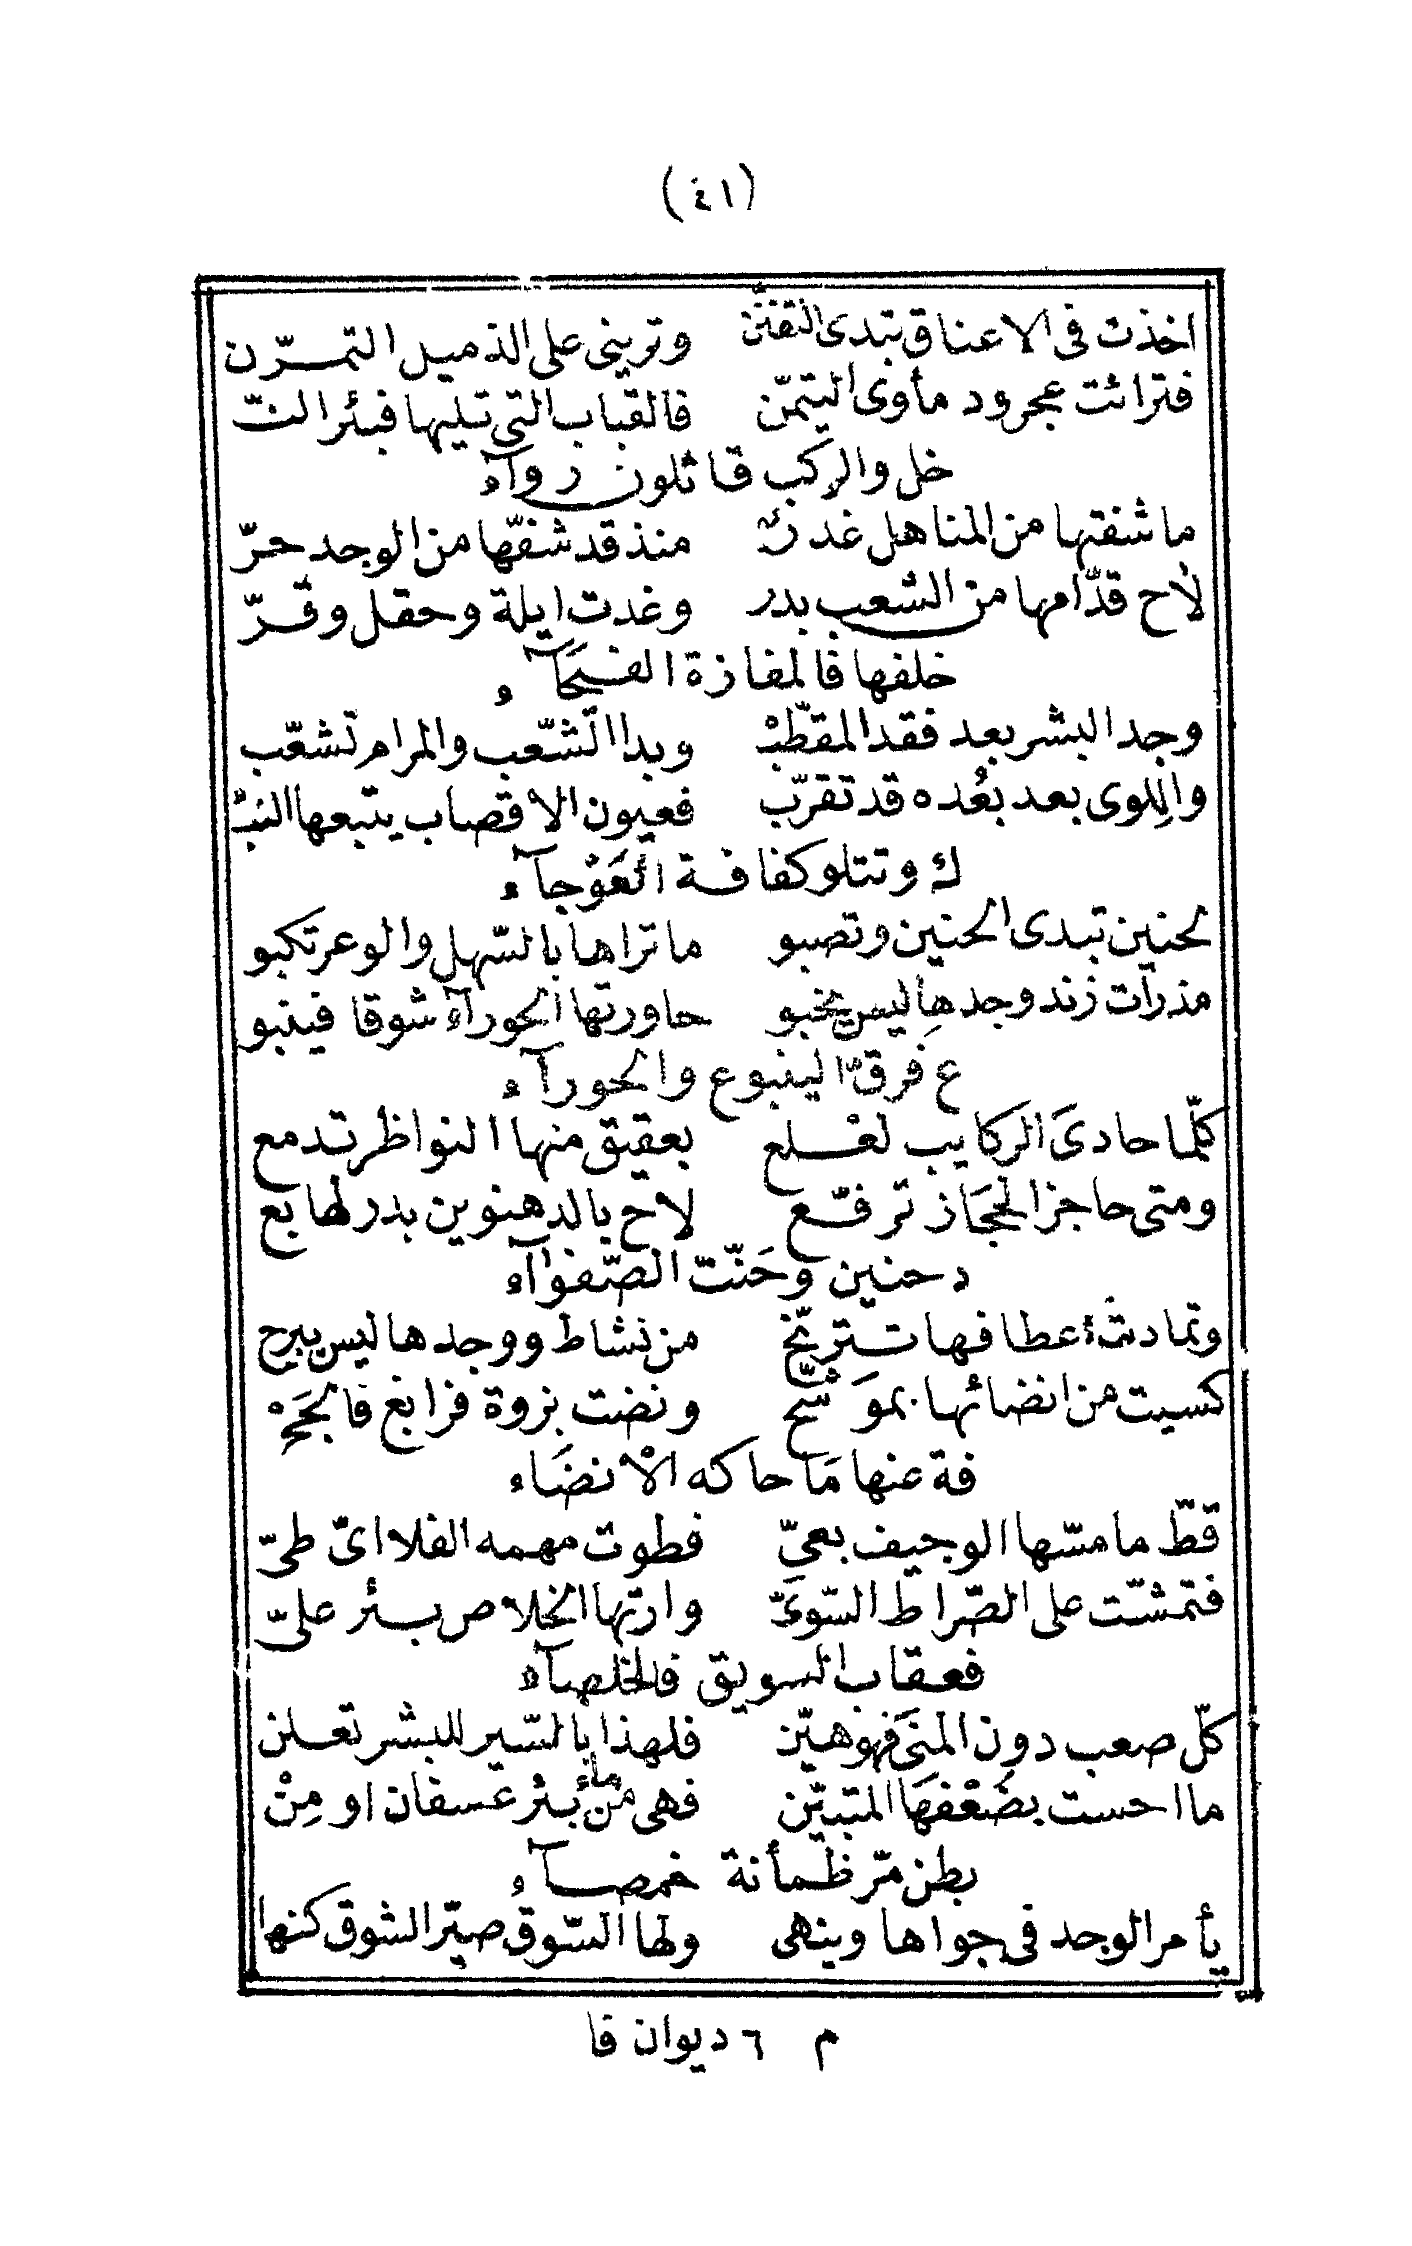 (٤١)
اخذت فى الاعناق تبدى التفنن وترينى على الذميل التمرّن
فترائت عجرود مأوى التيمّن فالقباب التى تليها فبئر النّ
خل والركب قائلون رواء
ما شفتها من المناهل غدر منذ قد شفّها من الوجد حرّ
لاح قدّامها من الشعب بدر وغدت ايلة وحقل وقرّ
خلفها فالمفازة الفيحآء
وجد البشر بعد فقد المقطّب وبدا الشّعب والمرام تشعّب
واللوى بعد بعُده قد تقرّب فعيون الاقصاب يتبعها النب
ك وتتلو كفافة العَوْجآء
لحنين تبدى الحنين وتصبو ما تراها بالسّهل والوعر تكبو
مذرأت زند وجدها ليس يخبو حاورتها الحورآء شوقا فينبو
ع فرقّ الينبوع والحورآء
كلّما حادىَ الركايب لعْلع بعقيق منها النواظر تدمع
ومتى حاجز الحجَاز ترفّع لاح بالدهنوين بدر لها بع
د حنين وحَنّت الصّفوآء
وتمادت أعطافها تترنّح من نشاط ووجدها ليس يبرح
كسيت من انضائها بموَشّح ونضت بزوة فرابغ فالجَحْ
فة عنها مَا حاكه الْانضَاء
قطّ ما مسّها الوجيف بعىّ فطوت مهمه الفلا اىّ طىّ
فتمشّت على الصّراط السّوىَّ وارتها الخلاص بئر علىّ
فعقاب السويق فالخلصآء
كلّ صعب دون المنَى فهو هيّن فلهذا بالسّير للبشر تعلن
ما احست بضُعْفهَا المتبيّن فهى من ماء بئر عسفان او مِنْ
بطن مرّ ظمأنة خمصآء
يأمر الوجد فى جواها وينهى ولها السّوقُ صيّر الشوق كنها
م ٦ ديوان فا